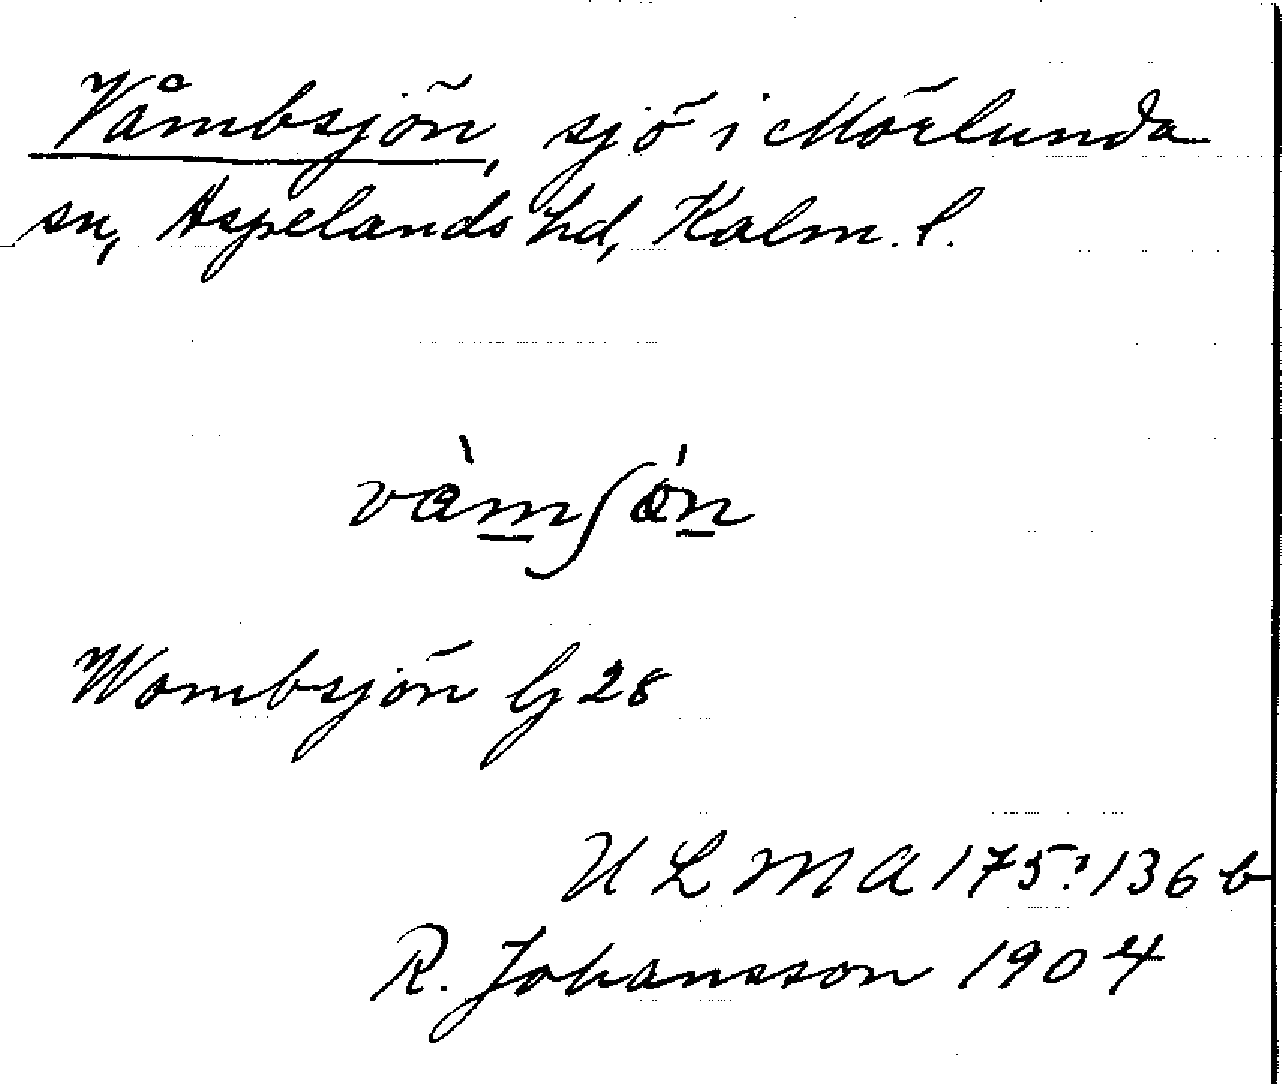 Våmbsjön, sjö i Mörlunda
sn, Aspelands hd, Kalm. l.
vàm̲ʃón̲
Wombsjön G 28
ULMA 175:136 b
R. Johansson 1904